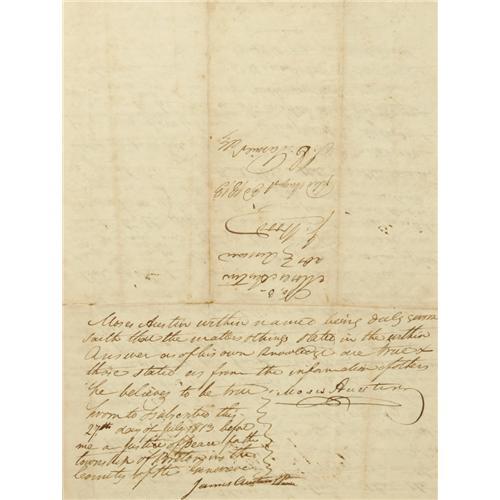 No. 3
Moses Austin
ads
Duncan
filed August 1813
Moses Austin within named being duly sworn
saith that the matters & things stated in the within
Answer as of his own knowledge are true &
those stated as from the information of others
he believes to be true Moses Austin
Sworn to & subscribed this
27th day of July 1813 before
me a Justice of the peace for the
township of in the
County of St. Genevieve
James Austin